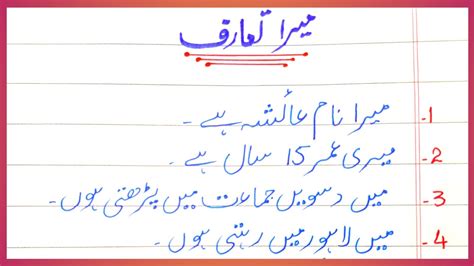 میرا تعارف
1- میرا نام عائشہ ہے -
2- میری عمر 15 سال ہے -
3- میں دسویں جماعت میں پڑھتی ہوں -
4- میں لاہور میں رہتی ہوں -